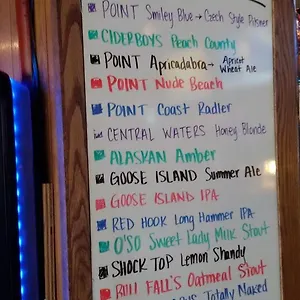 POINT Smiley Blue → Czech Style Pilsner
CIDERBOYS Peach County
POINT Apricadabra → Apricot Wheat Ale
POINT Nude Beach
POINT Coast Radler
CENTRAL WATERS Honey Blonde
ALASKAN Amber
GOOSE ISLAND Summer Ale
GOOSE ISLAND IPA
RED HOOK Long Hammer IPA
O'SO Sweet Lady Milk Stout
SHOCK TOP Lemon Shandy
BULL FALL'S Oatmeal Stout
Totally Naked